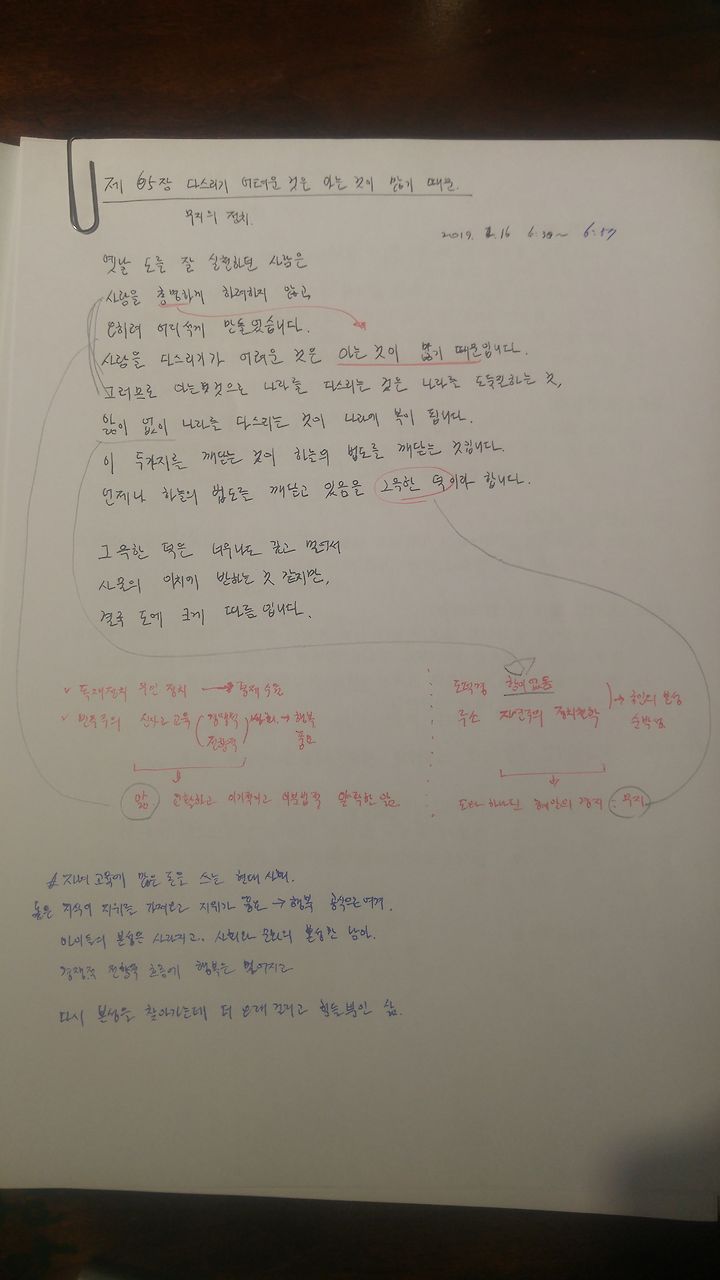 제 65장 다스리기 어려운 것은 아는 것이 많기 때문.
무지의 정치.
2019. 1.16 6:30~ 6:57
옛날 도를 잘 실현하던 사람은
사람을 총명하게 하려하지 않고
오히려 어리석게 만들었습니다.
사람을 다스리기가 어려운 것은 아는 것이 많기 때문입니다.
그러므로 아는 것으로 나라를 다스리는 것은 나라를 도둑질하는 것,
앎이 없이 나라를 다스리는 것이 나라에 복이 됩니다.
이 두가지를 깨닫는 것이 하늘의 법도를 깨닫는 것입니다.
언제나 하늘의 법도를 깨닫고 있음을 그윽한 덕이라 합니다.
그윽한 덕은 너무나도 깊고 멀어서
사물의 이치에 반하는 것 같지만,
결국 도에 크게 따름입니다.
독재정치 우민 정치 → 통제 수단
민주주의 교육 경쟁적 사회 → 행복
전투적 풍요
앎 이기적이고 앎
도덕경 함이 없음
주소 자연주의 정치철학 → 본성
순박
경지 : 무지
자녀 교육에 많은 돈을 쓰는 현대 사회.
높은 지식이 지위를 가져오고 지위가 풍요 → 행복 공식으로 여겨.
아이들의 본성은 사라지고, 사회와 문화의 본성만 남아.
경쟁적 흐름에 행복은 멀어지고
다시 본성을 찾아가는데 더 오래 걸리고 힘들 뿐인 삶.